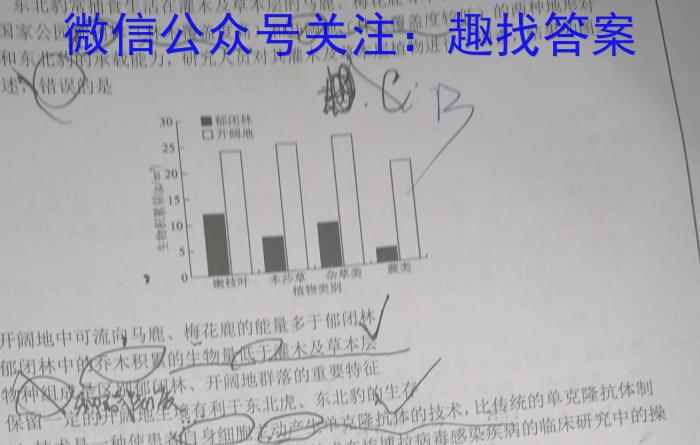 东北豹常捕食生活在灌木及草本层的马鹿、梅花鹿
覆盖度较低）的两种地形对
国家公
微信公众号关注：趣找答案
和东北豹的承载能力，研究人员对
灌木及
植物进行
述，错误的是
C
B
30
25
20
15
10
5
0
郁闭林
开阔地
生物积累量/(g/m²)
嫩枝叶
禾莎草
杂草类
蕨类
植物类别
开阔地中可流向马鹿、梅花鹿的能量多于郁闭林
郁闭林中的乔木积累的生物量低于灌木及草本层
物种组成是区别郁闭林、开阔地群落的重要特征
保留一定的开阔地生境有利于东北虎、东北豹的生存
技术是一种使患者自身细胞
动产生单克隆抗体的技术，比传统的单克隆抗体制
埃博拉病毒感染疾病的临床研究中的操